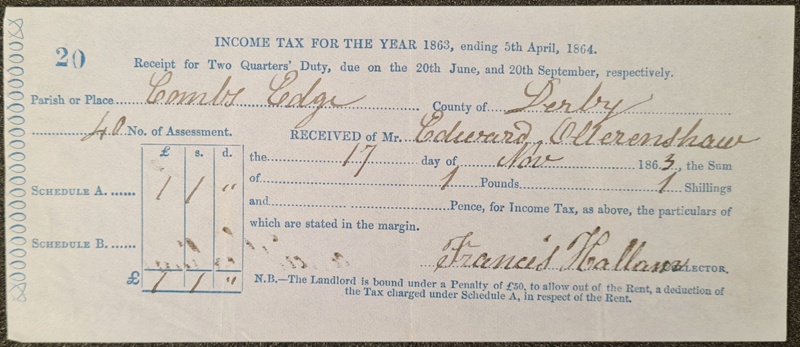 INCOME TAX FOR THE YEAR 1863, ending 5th April, 1864.
20
Receipt for Two Quarters' Duty, due on the 20th June, and 20th September, respectively.
Parish or Place Combs Edge County of Derby
40 No. of Assessment. RECEIVED of Mr. Edward Ollerenshaw
£ s. d. the 17 day of Nov 1863, the Sum
of 1 Pounds 1 Shillings
SCHEDULE A. 1 1 "
and Pence, for Income Tax, as above, the particulars of
which are stated in the margin.
SCHEDULE B.
Francis Hallam COLLECTOR.
£ 1 1 "
N.B.—The Landlord is bound under a Penalty of £50, to allow out of the Rent, a deduction of
the Tax charged under Schedule A, in respect of the Rent.